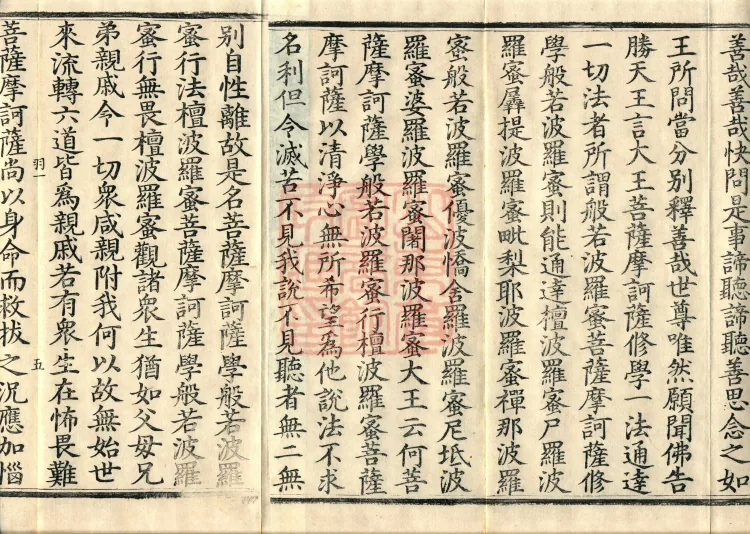 善哉善哉快問是事諦聽諦聽善思念之如
王所問當分別釋善哉世尊唯然願聞佛告
勝天王言大王菩薩摩訶薩修學一法通達
一切法者所謂般若波羅蜜菩薩摩訶薩修
學般若波羅蜜則能通達檀波羅蜜尸羅波
羅蜜羼提波羅蜜毗梨耶波羅蜜禪那波羅
蜜般若波羅蜜優波憍舍羅波羅蜜尼坻波
羅蜜婆羅波羅蜜闍那波羅蜜大王云何菩
薩摩訶薩學般若波羅蜜行檀波羅蜜菩薩
摩訶薩以清淨心無所希望為他說法不求
名利但令滅苦不見我說不見聽者無二無
別自性離故是名菩薩摩訶薩學般若波羅
蜜行法檀波羅蜜菩薩摩訶薩學般若波羅
蜜行無畏檀波羅蜜觀諸眾生猶如父母兄
弟親戚今一切眾咸親附我何以故無始世
來流轉六道皆為親戚若有眾生在怖畏難
羽一 五
菩薩摩訶薩尚以身命而救拔之況應加惱